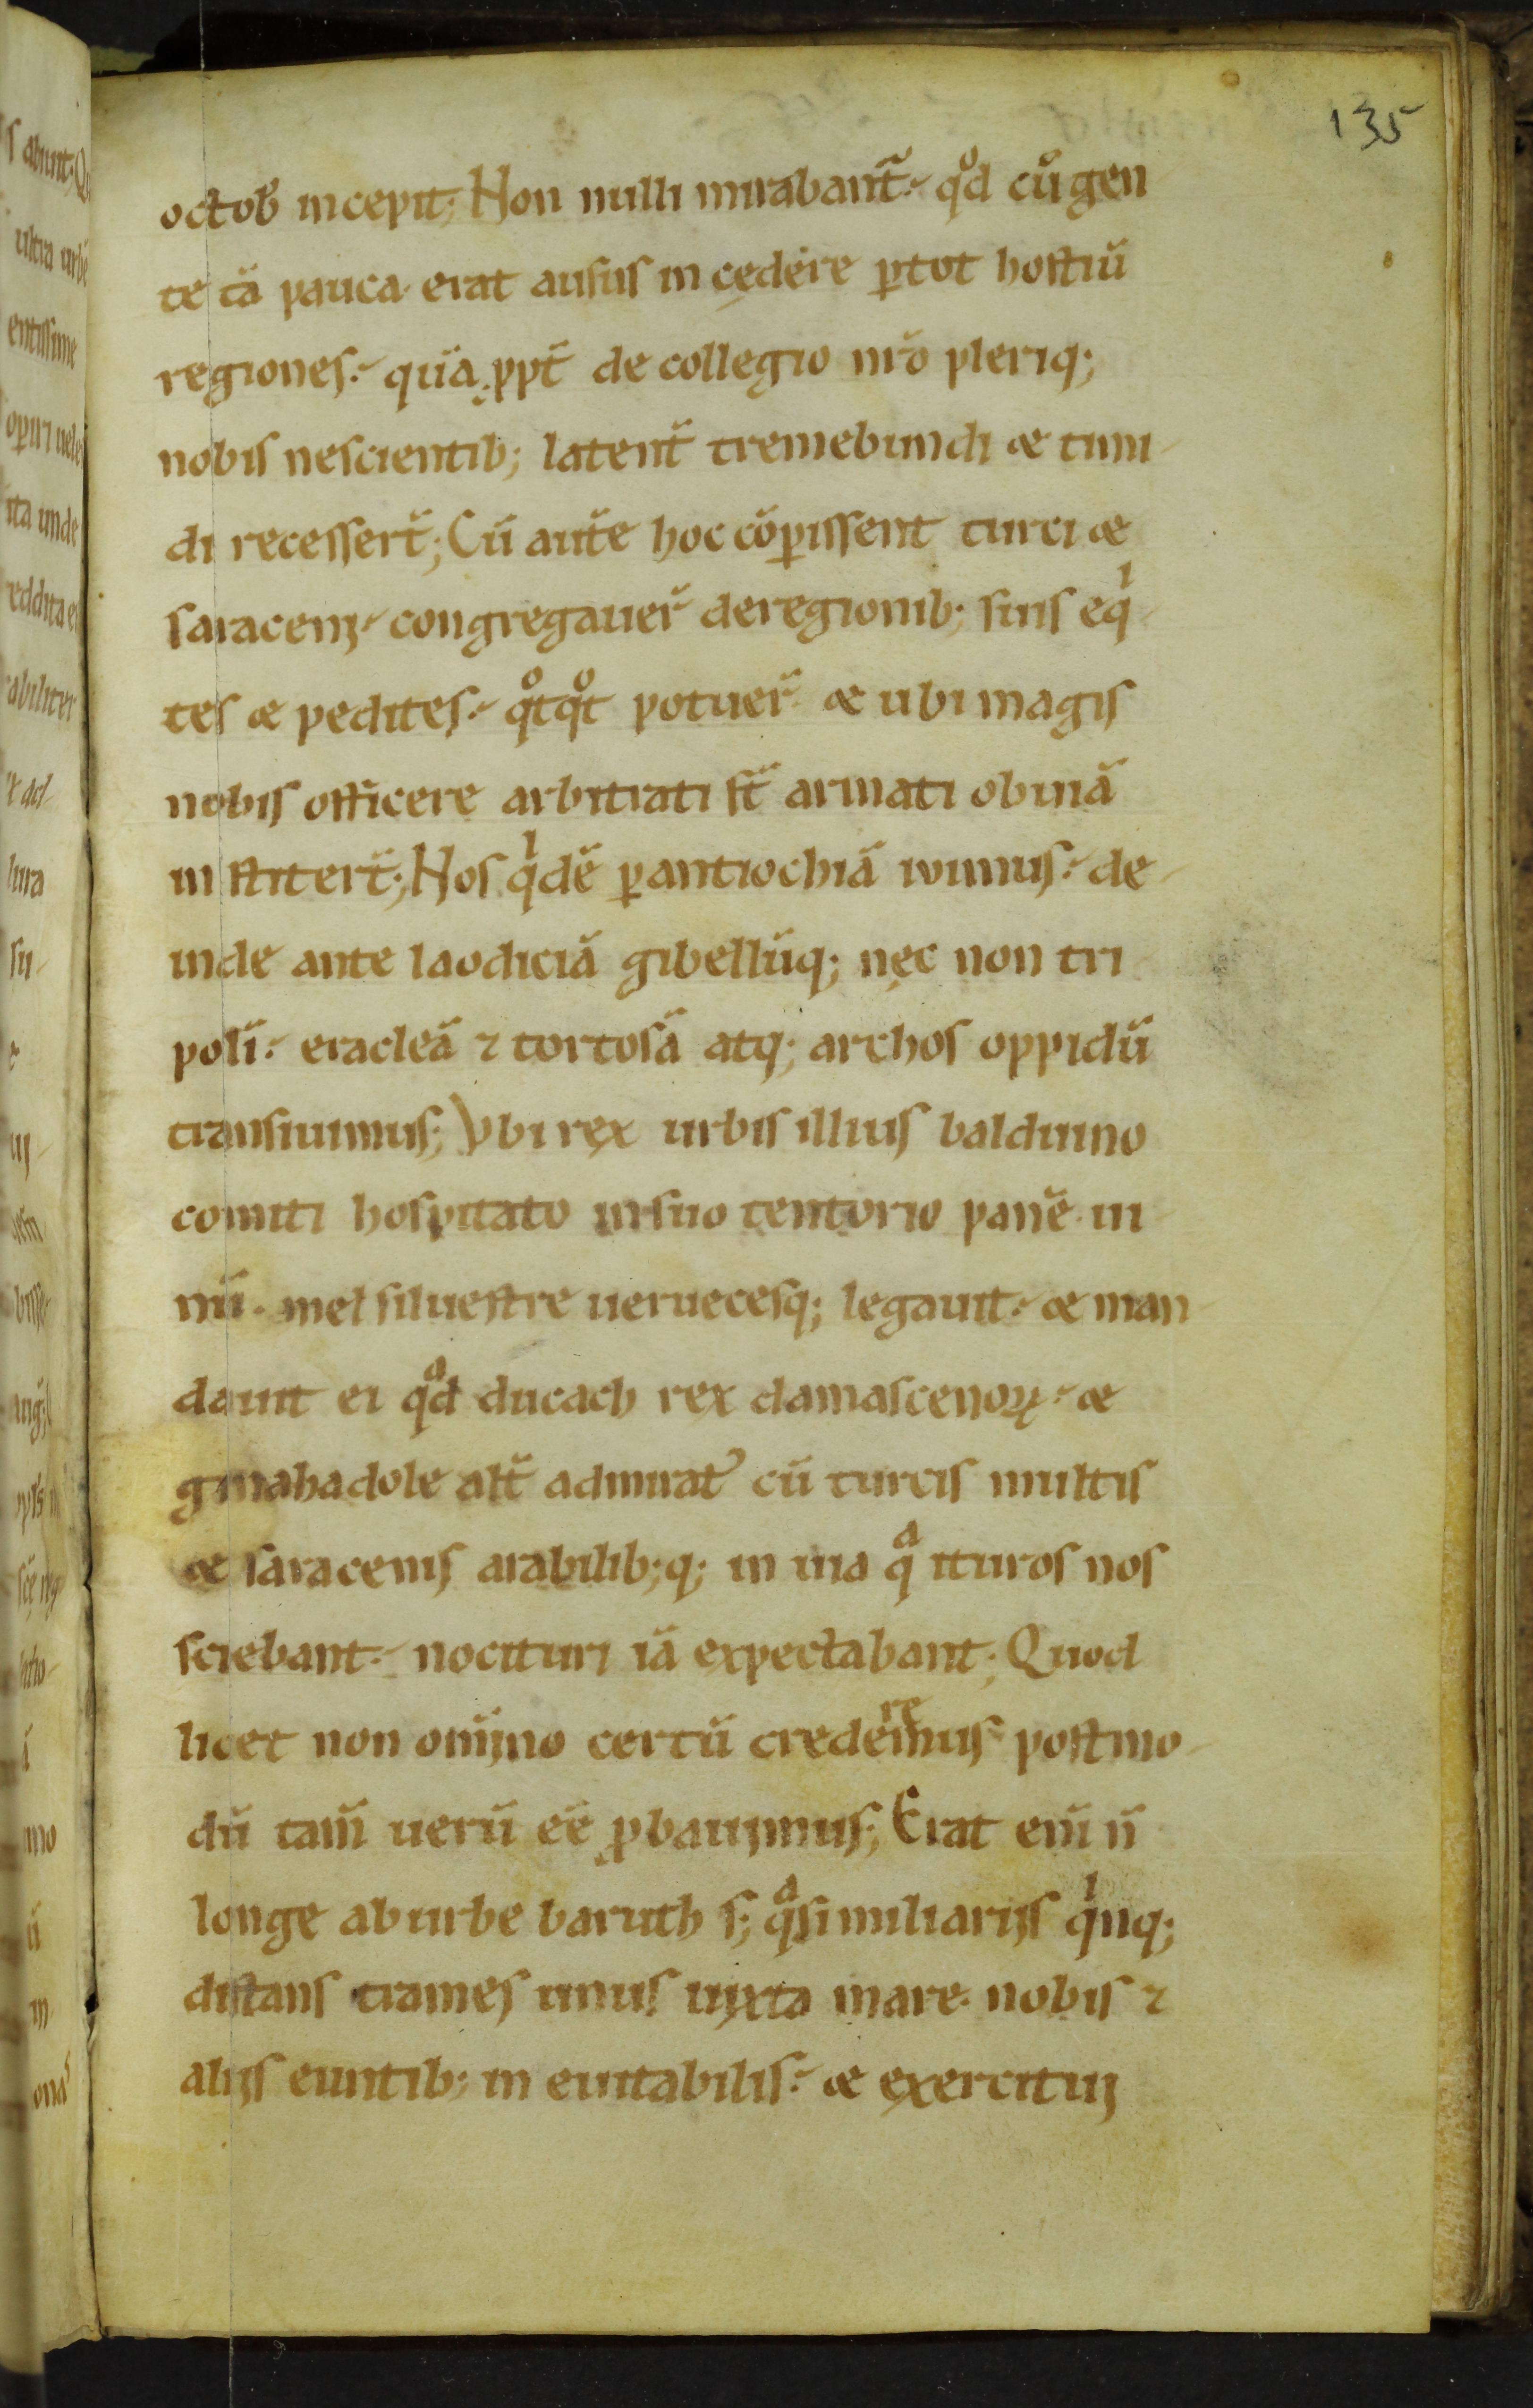 135
octob̄ incepit; Non nulli mirabant̃. qͦd cū gen
te tā pauca erat ausus in cędere ꝑtot hostiū
regiones. quā ꝓpt̄ de collegio nr̄o pleriq;
nobis nescientib; latent̄ tremebundi & timi-
di recessert̄; Cū aut̄e hoc cōꝑissent turci &
saraceni. congregauer̄ deregionib; suis eqͥ-
tes & pedites. qͦtqͦt potuer̄ & ubi magis
nobis officere arbitrati st̄ armati obuiā
in stitert̄; Nos qͥdē ꝑantiochiā iuimus. de-
inde ante laodiciā gibellūq; nęc non tri
polī. eracleā ⁊ tortosā atq; archos oppidū
transiuimus; Vbi rex urbis illius balduino
comiti hospitato insuo tentorio panē. ui
nū. mel siluestre ueruecesq; legauit. & man
dauit ei qͦd ducach rex damascenoꝝ. &
ginahadole alt̄ admirat᾽ cū turcis multis
& saracenis arabilib;q; in uia qᵃ ituros nos
sciebant. nocituri iā expectabant; Quod
licet non om̄ino certū crederemus postmo-
dū tam̄ uerū eē ꝓbauimus; Erat em̄ n̄
longe aburbe baruth s; qᵃsi miliarijs qͥnq;
distans trames unus iuxta mare. nobis ⁊
alijs euntib; in euitabilis. & exercitui